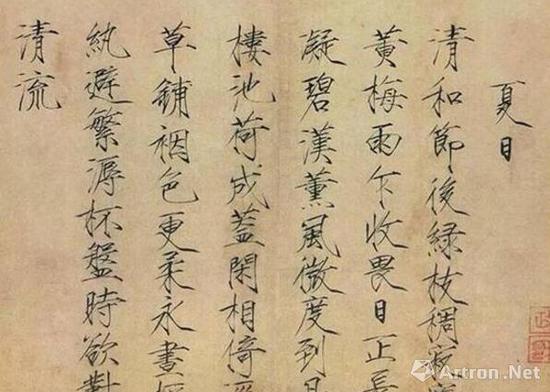 夏日
清和節後綠枝稠寂
黃梅雨乍收畏日正長
凝碧漢薰風微度到
樓池荷成蓋閑相倚
草鋪裀色更柔永晝
紈避繁溽杯盤時欲對
清流
Artron.Net